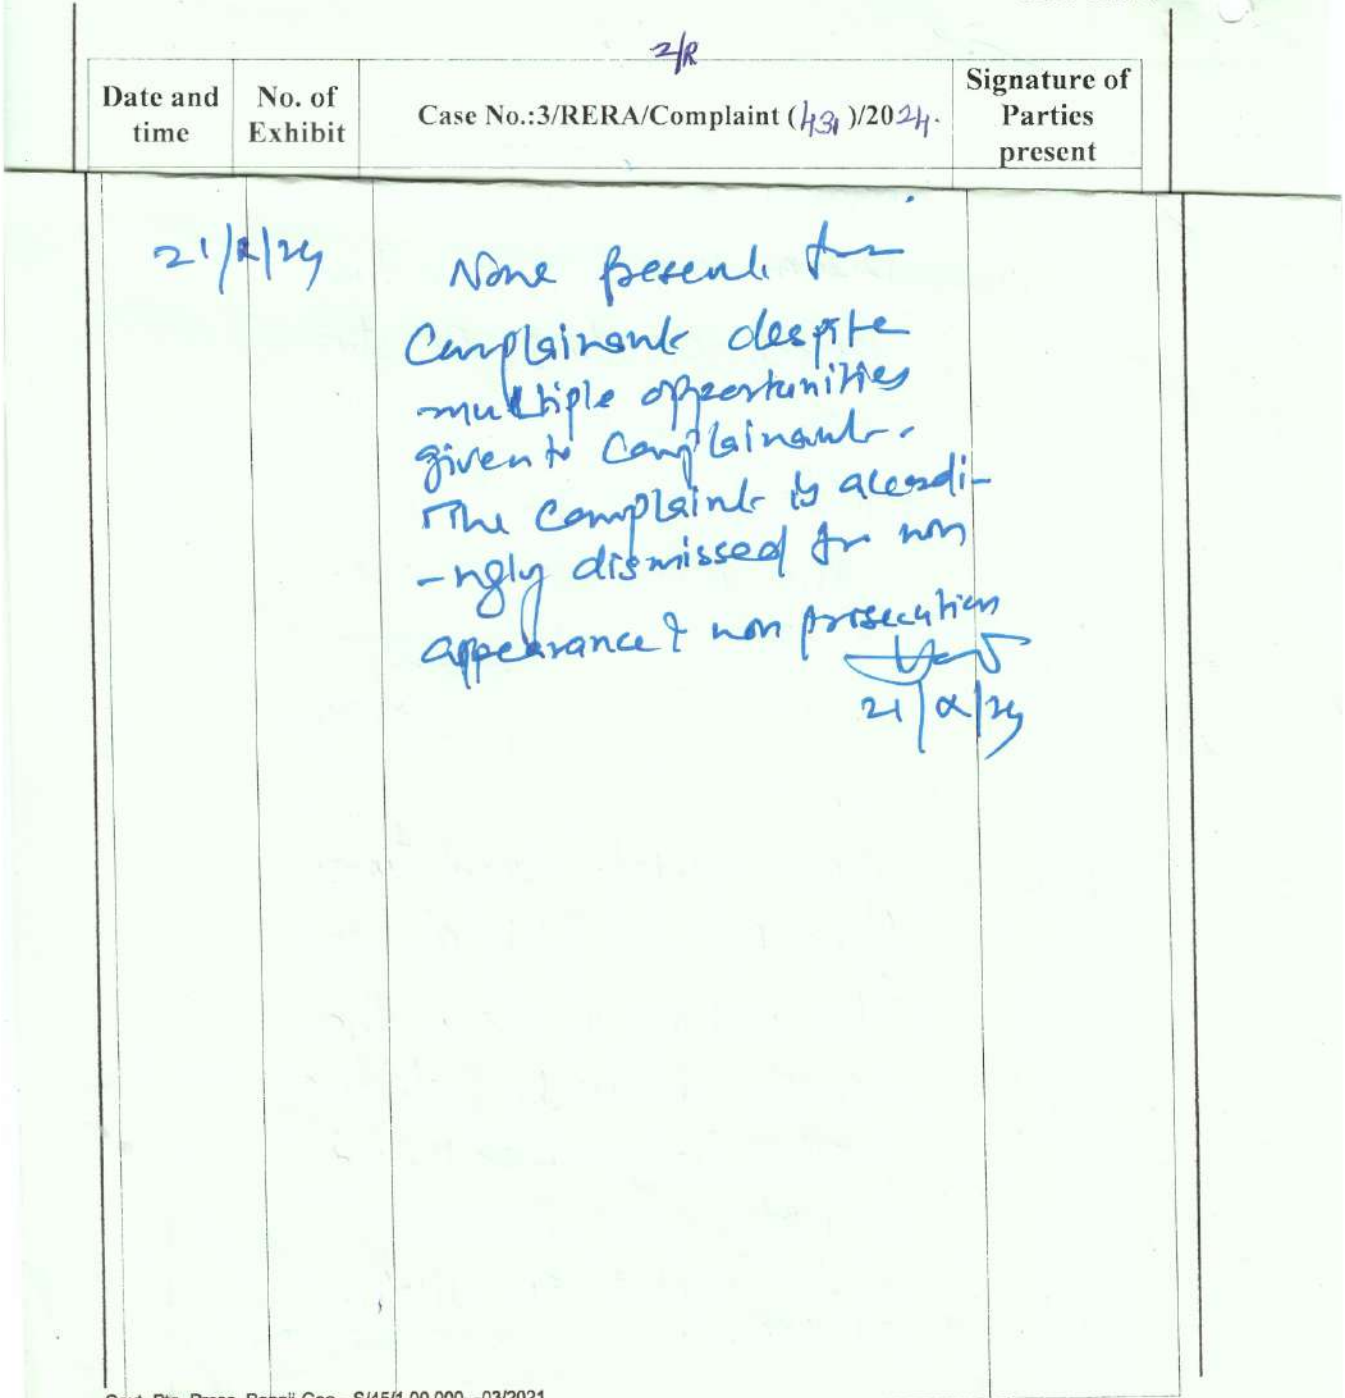 2/R
Date and time
No. of Exhibit
Case No.:3/RERA/Complaint (431)/2024.
Signature of Parties present
None present for
Complainant despite
multiple opportunities
given to Complainant.
The Complaint is accordi-
-ngly dismissed for non
appearance & non prosecution